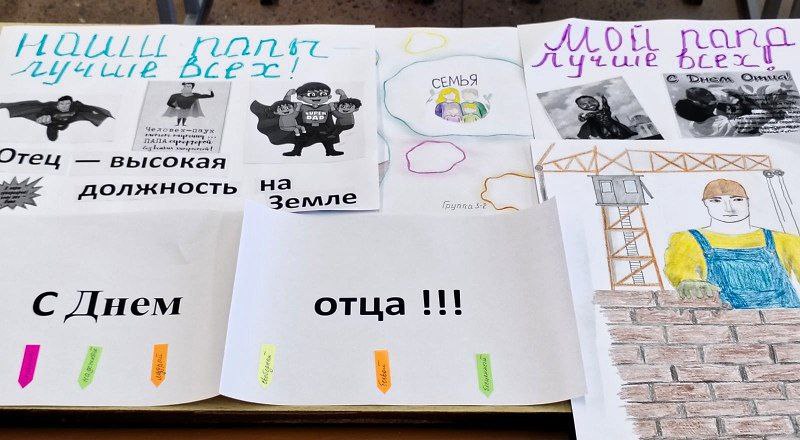 Наши папы –
лучше всех!
Мой папа
лучше всех!
СЕМЬЯ
С Днем Отца!
SUPER
DAD
Человек-паук
ПАПА
Отец — высокая
должность на
Земле
Группа
С Днем отца !!!
надежный